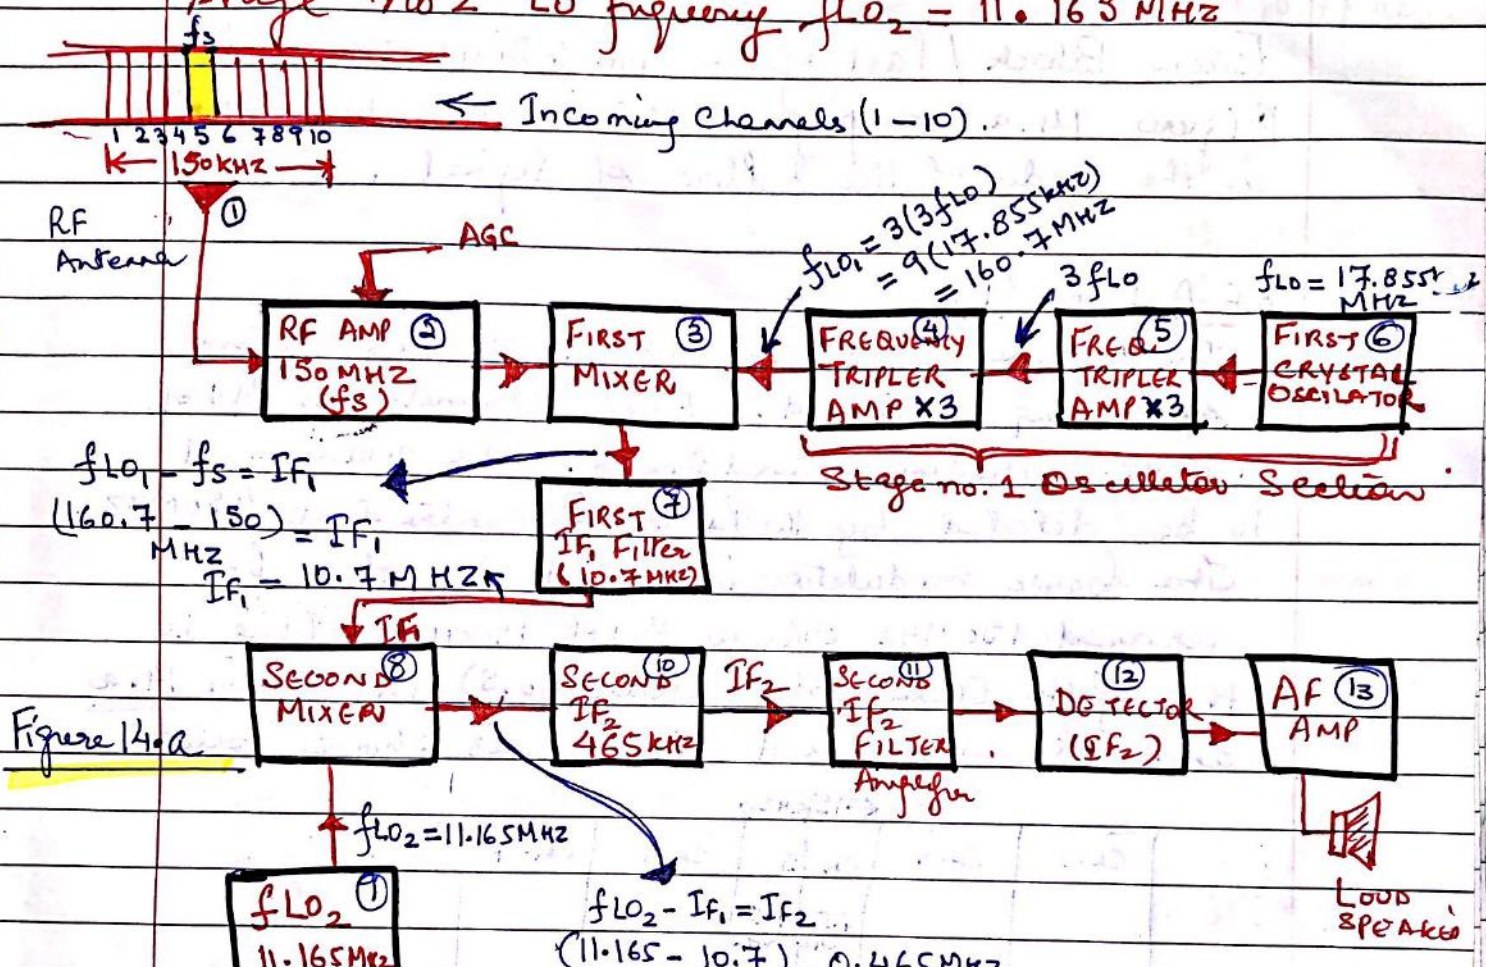 Stage No 2 LO frequency fLO₂ = 11.165 MHz
fs
← Incoming Channels (1-10).
1 2 3 4 5 6 7 8 9 10
150 KHZ
①
RF
Antenna
AGC
fLO₁ = 3(3fLO)
= 9(17.855kHz)
= 160.7 MHZ
3fLO
fLO = 17.855
MHZ
RF AMP ②
150 MHZ
(fs)
FIRST ③
MIXER
FREQUENCY ④
TRIPLER
AMP X3
FREQ. ⑤
TRIPLER
AMP X3
FIRST ⑥
CRYSTAL
OSCILATOR
Stage no. 1 Oscillator Section
fLO₁ - fs = IF₁
(160.7 - 150) = IF₁
MHZ
IF₁ - 10.7 MHZ
FIRST ⑦
IF₁ Filter
(10.7 MHZ)
IF₁
SECOND ⑧
MIXER
SECOND ⑩
IF₂
465 kHZ
IF₂
SECOND ⑪
If₂
FILTER
Amplifier
⑫
DETECTOR
(IF₂)
AF ⑬
AMP
Figure 14.a
fLO₂ = 11.165MHZ
fLO₂
11.165MHZ
fLO₂ - IF₁ = IF₂
(11.165 - 10.7) 0.465MHZ
LOUD
SPEAKER